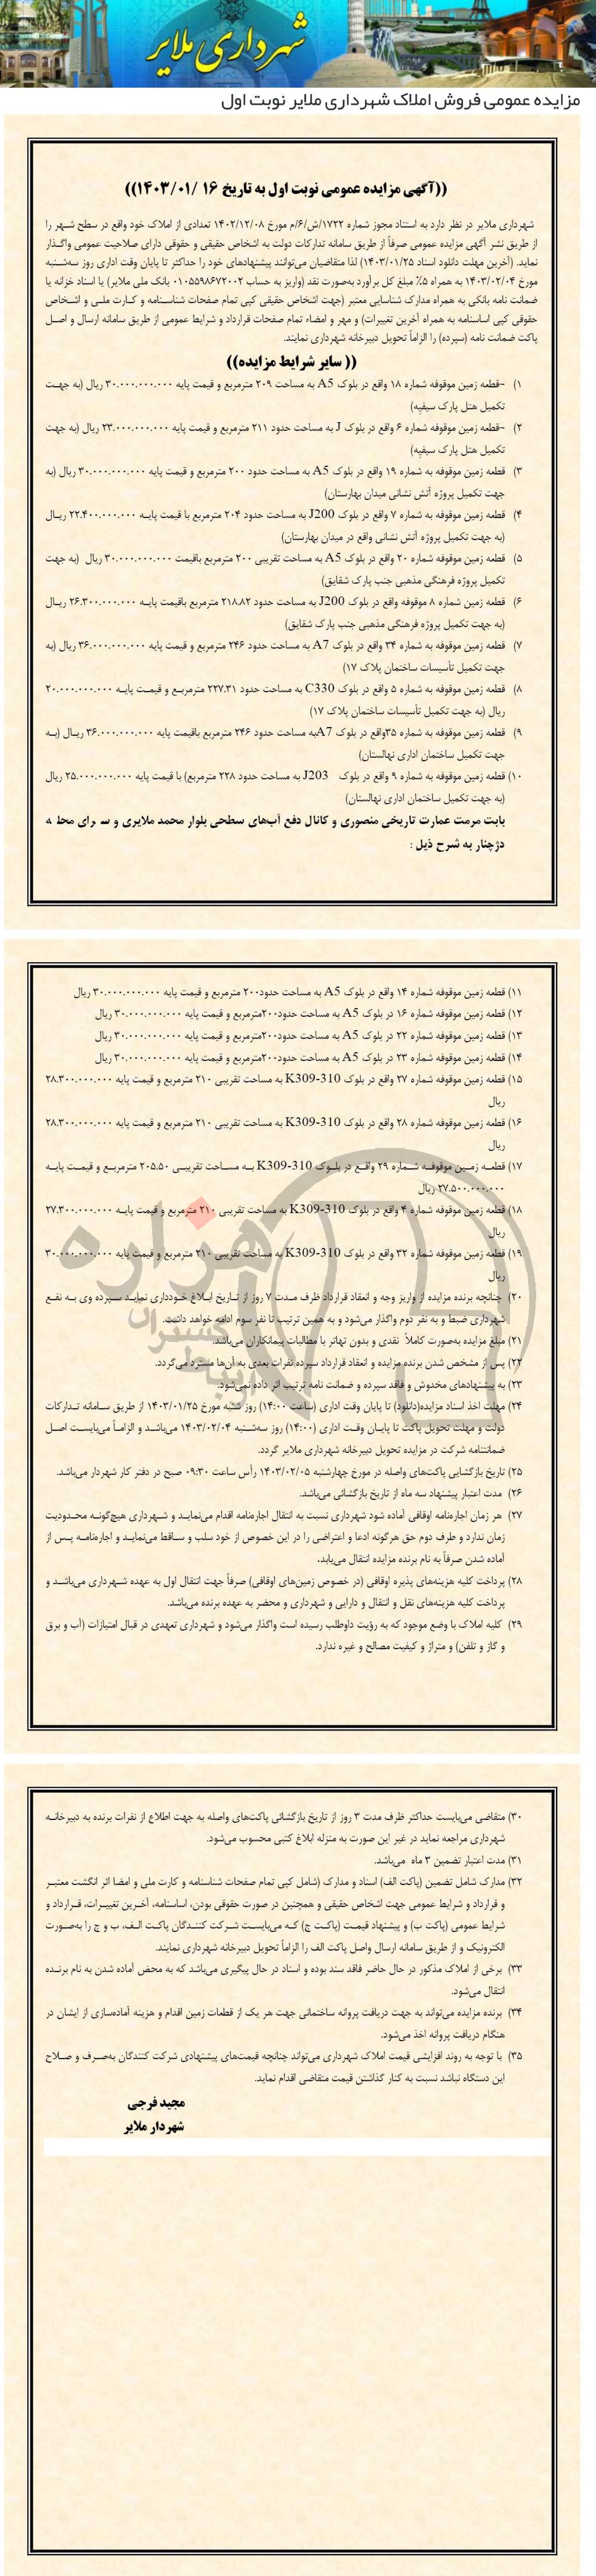 شهرداری ملایر
مزایده عمومی فروش املاک شهرداری ملایر نوبت اول
((آگهی مزایده عمومی نوبت اول به تاریخ ۱۶ /۱۴۰۳/۰۱))
شهرداری ملایر در نظر دارد به استناد مجوز شماره ۱۷۲۲/ش/۶/م مورخ ۱۴۰۲/۱۲/۰۸ تعدادی از املاک خود واقع در سطح شهر را
از طریق نشر آگهی مزایده عمومی صرفاً از طریق سامانه تدارکات دولت به اشخاص حقیقی و حقوقی دارای صلاحیت عمومی واگذار
نماید. (آخرین مهلت دانلود اسناد ۱۴۰۳/۰۱/۲۵) لذا متقاضیان می‌توانند پیشنهادهای خود را حداکثر تا پایان وقت اداری روز سه‌شنبه
مورخ ۱۴۰۳/۰۲/۰۴ به همراه ۵٪ مبلغ کل برآورد به‌صورت نقد (واریز به حساب ۰۱۰۵۵۹۸۶۷۲۰۰۲ بانک ملی ملایر) یا اسناد خزانه یا
ضمانت نامه بانکی به همراه مدارک شناسایی معتبر (جهت اشخاص حقیقی کپی تمام صفحات شناسنامه و کارت ملی و اشخاص
حقوقی کپی اساسنامه به همراه آخرین تغییرات) و مهر و امضاء تمام صفحات قرارداد و شرایط عمومی از طریق سامانه ارسال و اصل
پاکت ضمانت نامه (سپرده) را الزاماً تحویل دبیرخانه شهرداری نمایند.
(( سایر شرایط مزایده))
۱) -قطعه زمین موقوفه شماره ۱۸ واقع در بلوک A5 به مساحت ۲۰۹ مترمربع و قیمت پایه ۳۰.۰۰۰.۰۰۰.۰۰۰ ریال (به جهت
تکمیل هتل پارک سیفیه)
۲) -قطعه زمین موقوفه شماره ۶ واقع در بلوک J به مساحت حدود ۲۱۱ مترمربع و قیمت پایه ۲۳.۰۰۰.۰۰۰.۰۰۰ ریال (به جهت
تکمیل هتل پارک سیفیه)
۳) قطعه زمین موقوفه به شماره ۱۹ واقع در بلوک A5 به مساحت حدود ۲۰۰ مترمربع و قیمت پایه ۳۰.۰۰۰.۰۰۰.۰۰۰ ریال (به
جهت تکمیل پروژه آتش نشانی میدان بهارستان)
۴) قطعه زمین موقوفه به شماره ۷ واقع در بلوک J200 به مساحت حدود ۲۰۴ مترمربع با قیمت پایه ۲۲.۴۰۰.۰۰۰.۰۰۰ ریال
(به جهت تکمیل پروژه آتش نشانی واقع در میدان بهارستان)
۵) قطعه زمین موقوفه به شماره ۲۰ واقع در بلوک A5 به مساحت تقریبی ۲۰۰ مترمربع باقیمت ۳۰.۰۰۰.۰۰۰.۰۰۰ ریال (به جهت
تکمیل پروژه فرهنگی مذهبی جنب پارک شقایق)
۶) قطعه زمین شماره ۸ موقوفه واقع در بلوک J200 به مساحت حدود ۲۱۸.۸۲ مترمربع باقیمت پایه ۲۶.۳۰۰.۰۰۰.۰۰۰ ریال
(به جهت تکمیل پروژه فرهنگی مذهبی جنب پارک شقایق)
۷) قطعه زمین موقوفه به شماره ۳۴ واقع در بلوک A7 به مساحت حدود ۲۴۶ مترمربع و قیمت پایه ۳۶.۰۰۰.۰۰۰.۰۰۰ ریال (به
جهت تکمیل تأسیسات ساختمان پلاک ۱۷)
۸) قطعه زمین موقوفه به شماره ۵ واقع در بلوک C330 به مساحت حدود ۲۲۷.۳۱ مترمربع و قیمت پایه ۲۰.۰۰۰.۰۰۰.۰۰۰
ریال (به جهت تکمیل تأسیسات ساختمان پلاک ۱۷)
۹) قطعه زمین موقوفه به شماره ۳۵واقع در بلوک A7به مساحت حدود ۲۴۶ مترمربع باقیمت پایه ۳۶.۰۰۰.۰۰۰.۰۰۰ ریال (به
جهت تکمیل ساختمان اداری نهالستان)
۱۰) قطعه زمین موقوفه به شماره ۹ واقع در بلوک J203 به مساحت حدود ۲۲۸ مترمربع) با قیمت پایه ۲۵.۰۰۰.۰۰۰.۰۰۰ ریال
(به جهت تکمیل ساختمان اداری نهالستان)
بابت مرمت عمارت تاریخی منصوری و کانال دفع آب‌های سطحی بلوار محمد ملایری و
دژچنار به شرح ذیل :
۱۱) قطعه زمین موقوفه شماره ۱۴ واقع در بلوک A5 به مساحت حدود۲۰۰ مترمربع و قیمت پایه ۳۰.۰۰۰.۰۰۰.۰۰۰ ریال
۱۲) قطعه زمین موقوفه شماره ۱۶ در بلوک A5 به مساحت حدود۲۰۰مترمربع و قیمت پایه ۳۰.۰۰۰.۰۰۰.۰۰۰ ریال
۱۳) قطعه زمین موقوفه شماره ۲۲ در بلوک A5 به مساحت حدود۲۰۰مترمربع و قیمت پایه ۳۰.۰۰۰.۰۰۰.۰۰۰ ریال
۱۴) قطعه زمین موقوفه شماره ۲۳ در بلوک A5 به مساحت حدود۲۰۰مترمربع و قیمت پایه ۳۰.۰۰۰.۰۰۰.۰۰۰ ریال
۱۵) قطعه زمین موقوفه شماره ۲۷ واقع در بلوک K309-310 به مساحت تقریبی ۲۱۰ مترمربع و قیمت پایه ۲۸.۳۰۰.۰۰۰.۰۰۰
ریال
۱۶) قطعه زمین موقوفه شماره ۲۸ واقع در بلوک K309-310 به مساحت تقریبی ۲۱۰ مترمربع و قیمت پایه ۲۸.۳۰۰.۰۰۰.۰۰۰
ریال
۱۷) قطعه زمین موقوفه شماره ۲۹ واقع در بلوک K309-310 به مساحت تقریبی ۲۰۵.۵۰ مترمربع و قیمت پایه
۲۷.۵۰۰.۰۰۰.۰۰۰ ریال
۱۸) قطعه زمین موقوفه شماره ۴ واقع در بلوک K309-310 به مساحت تقریبی ۲۱۰ مترمربع و قیمت پایه ۲۷.۳۰۰.۰۰۰.۰۰۰
ریال
۱۹) قطعه زمین موقوفه شماره ۳۲ واقع در بلوک K309-310 به مساحت تقریبی ۲۱۰ مترمربع و قیمت پایه ۳۰.۰۰۰.۰۰۰.۰۰۰
ریال
۲۰) چنانچه برنده مزایده از واریز وجه و انعقاد قرارداد ظرف مدت ۷ روز از تاریخ ابلاغ خودداری نماید سپرده وی به نفع
شهرداری ضبط و به نفر دوم واگذار می‌شود و به همین ترتیب تا نفر سوم ادامه خواهد داشت.
۲۱) مبلغ مزایده به‌صورت کاملاً نقدی و بدون تهاتر با مطالبات پیمانکاران می‌باشد.
۲۲) پس از مشخص شدن برنده مزایده و انعقاد قرارداد سپرده نفرات بعدی به آن‌ها مسترد می‌گردد.
۲۳) به پیشنهادهای مخدوش و فاقد سپرده و ضمانت نامه ترتیب اثر داده نمی‌شود.
۲۴) مهلت اخذ اسناد مزایده(دانلود) تا پایان وقت اداری (ساعت ۱۴:۰۰) روز شنبه مورخ ۱۴۰۳/۰۱/۲۵ از طریق سامانه تدارکات
دولت و مهلت تحویل پاکت تا پایان وقت اداری (۱۴:۰۰) روز سه‌شنبه ۱۴۰۳/۰۲/۰۴ می‌باشد و الزاماً می‌بایست اصل
ضمانتنامه شرکت در مزایده تحویل دبیرخانه شهرداری ملایر گردد.
۲۵) تاریخ بازگشایی پاکت‌های واصله در مورخ چهارشنبه ۱۴۰۳/۰۲/۰۵ رأس ساعت ۰۹:۳۰ صبح در دفتر کار شهردار می‌باشد.
۲۶) مدت اعتبار پیشنهاد سه ماه از تاریخ بازگشائی می‌باشد.
۲۷) هر زمان اجاره‌نامه اوقافی آماده شود شهرداری نسبت به انتقال اجاره‌نامه اقدام می‌نماید و شهرداری هیچ‌گونه محدودیت
زمان ندارد و طرف دوم حق هرگونه ادعا و اعتراضی را در این خصوص از خود سلب و ساقط می‌نماید و اجاره‌نامه پس از
آماده شدن صرفاً به نام برنده مزایده انتقال می‌یابد.
۲۸) پرداخت کلیه هزینه‌های پذیره اوقافی (در خصوص زمین‌های اوقافی) صرفاً جهت انتقال اول به عهده شهرداری می‌باشد و
پرداخت کلیه هزینه‌های نقل و انتقال و دارایی و شهرداری و محضر به عهده برنده می‌باشد.
۲۹) کلیه املاک با وضع موجود که به رؤیت داوطلب رسیده است واگذار می‌شود و شهرداری تعهدی در قبال امتیازات (آب و برق
و گاز و تلفن) و متراژ و کیفیت مصالح و غیره ندارد.
هزاره
۳۰) متقاضی می‌بایست حداکثر ظرف مدت ۳ روز از تاریخ بازگشائی پاکت‌های واصله به جهت اطلاع از نفرات برنده به دبیرخانه
شهرداری مراجعه نماید در غیر این صورت به منزله ابلاغ کتبی محسوب می‌شود.
۳۱) مدت اعتبار تضمین ۳ ماه می‌باشد.
۳۲) مدارک شامل تضمین (پاکت الف) اسناد و مدارک (شامل کپی تمام صفحات شناسنامه و کارت ملی و امضا اثر انگشت معتبر
و قرارداد و شرایط عمومی جهت اشخاص حقیقی و همچنین در صورت حقوقی بودن، اساسنامه، آخرین تغییرات، قرارداد و
شرایط عمومی (پاکت ب) و پیشنهاد قیمت (پاکت ج) که می‌بایست شرکت کنندگان پاکت الف، ب و ج را به‌صورت
الکترونیک و از طریق سامانه ارسال واصل پاکت الف را الزاماً تحویل دبیرخانه شهرداری نمایند.
۳۳) برخی از املاک مذکور در حال حاضر فاقد سند بوده و اسناد در حال پیگیری می‌باشد که به محض آماده شدن به نام برنده
انتقال می‌شود.
۳۴) برنده مزایده می‌تواند به جهت دریافت پروانه ساختمانی جهت هر یک از قطعات زمین اقدام و هزینه آماده‌سازی از ایشان در
هنگام دریافت پروانه اخذ می‌شود.
۳۵) با توجه به روند افزایشی قیمت املاک شهرداری می‌تواند چنانچه قیمت‌های پیشنهادی شرکت کنندگان به‌صرف و صلاح
این دستگاه نباشد نسبت به کنار گذاشتن قیمت متقاضی اقدام نماید.
مجید فرجی
شهردار ملایر